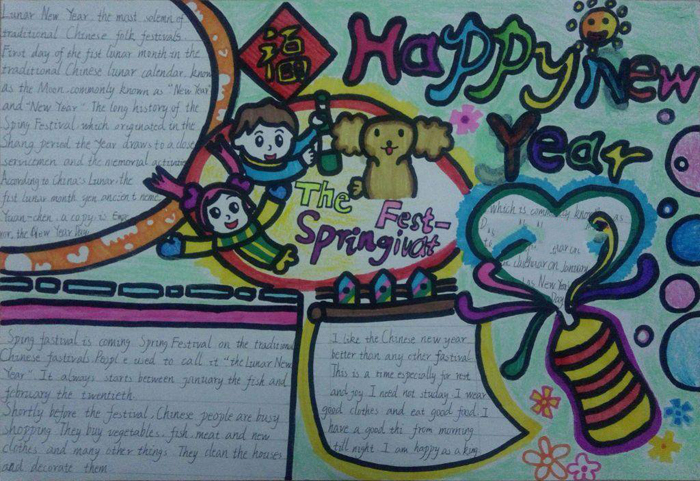 Lunar New Year, the most solemn of
traditional Chinese folk festivals.
First day of the fist lunar month in the
traditional Chinese lunar calendar, know
as the Mion, commonly known as "New Year"
and "New Year". The long history of the
Sping Festival which originated in the
Shang period the Year draws to a close
servicemen and the memorial activities
According to China's Lunar, the
fist lunar month
a copy is
the New Year
福
Happy New
Year
The
Fest-
Spring
which is commonly know as
on January
New Year
Sping fastival is coming. Sping Festival on the traditional
Chinese fastivals. Peopl e used to call it "the Lunar New
Year". It always starts between january the fish and
february the twentieth.
Shortly before the festival, Chinese people are busy
shopping. They buy vegetables, fish meat and new
clothes and many other things. They clean the houses
and decorate them
I like the Chinese new year
better than any other fastival.
This is a time especally for rest
and joy I need not studay. I wear
good clothes and eat good food. I
have a good thi from morning
till night. I am happy as a king.